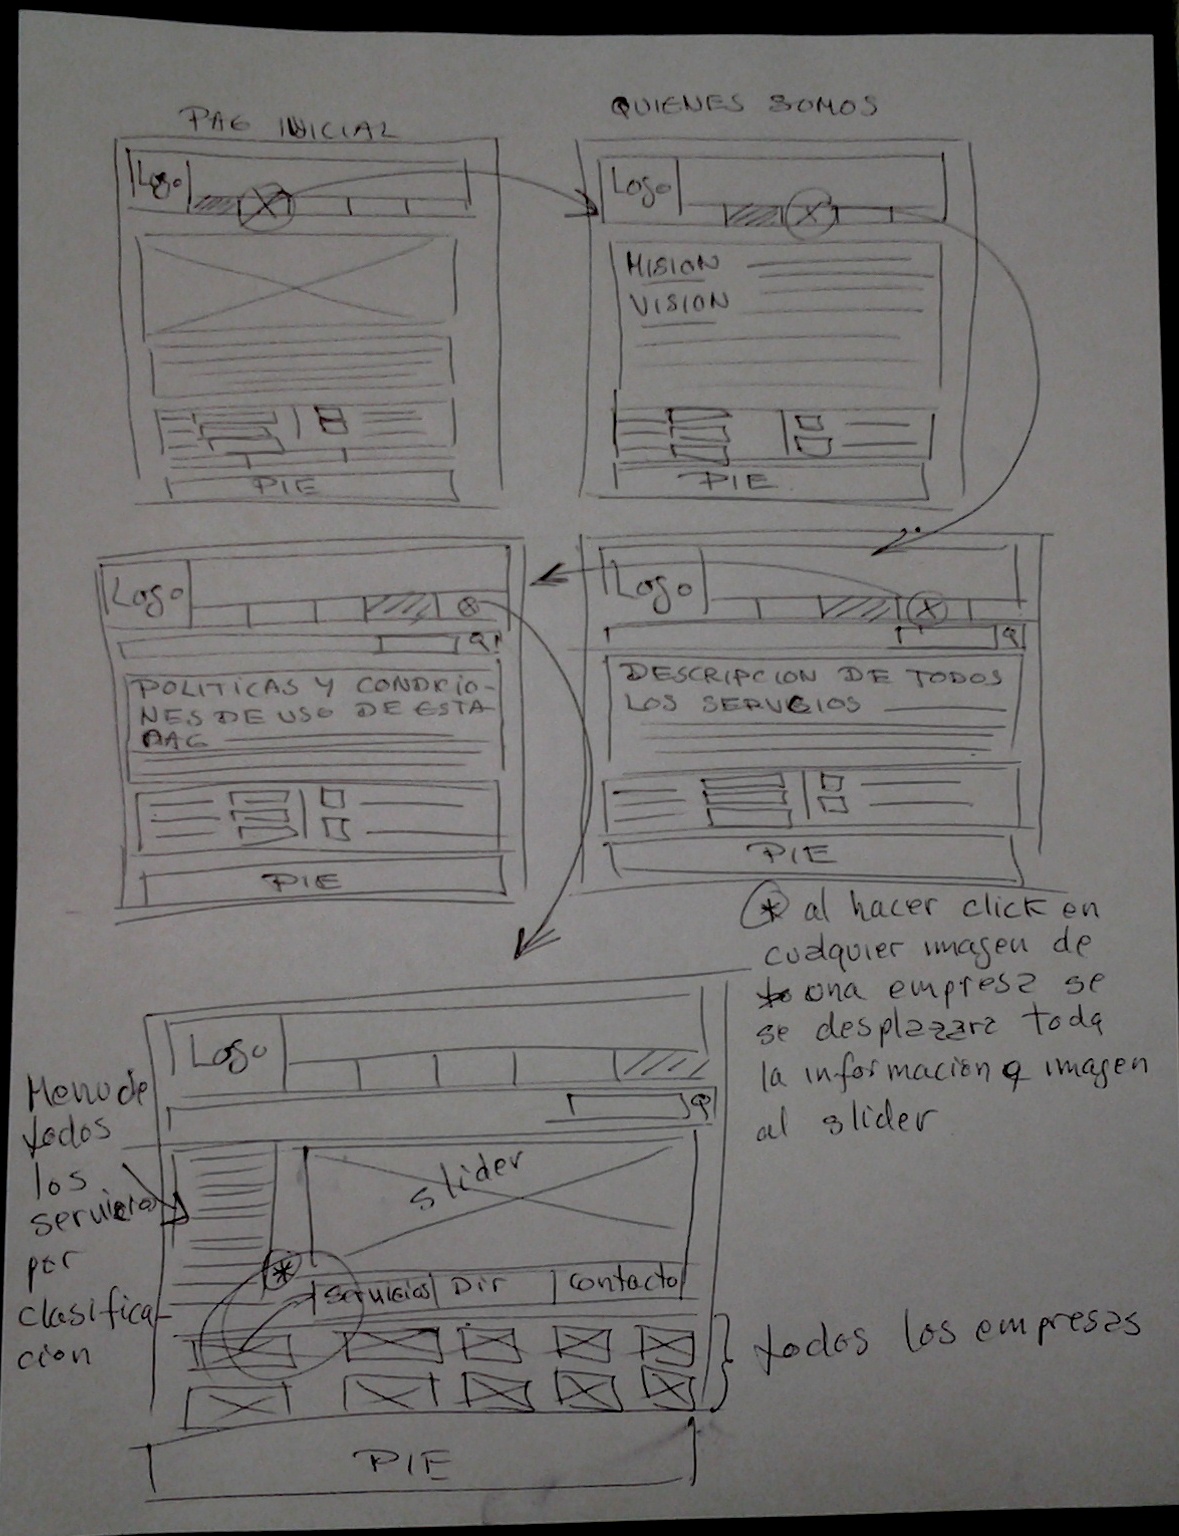 PAG INICIAL
QUIENES SOMOS
Logo
Logo
MISION
VISION
PIE
PIE
Logo
Logo
POLITICAS Y CONDICIO-
NES DE USO DE ESTA
PAG
DESCRIPCION DE TODOS
LOS SERVICIOS
PIE
PIE
* al hacer click en
cualquier imagen de
una empresa se
se desplazara toda
la informacion q imagen
al slider
Logo
Menu de
todos
los
servicios
por
clasifica-
cion
slider
*
Servicios Dir Contacto
todos los empresas
PIE